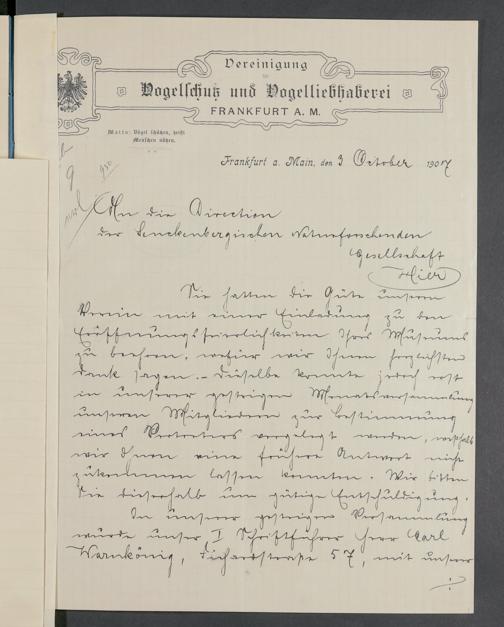 Vereinigung
für
Vogelschutz und Vogelliebhaberei
FRANKFURT A. M.
Motto: Vögel schützen, heißt
Menschen nützen.
Frankfurt a. Main, den 3 October 1907
An die Direction
der Senckenbergischen Naturforschenden
Gesellschaft
Hier
Sie hatten die Güte unseren
Verein mit einer Einladung zu den
Eröffnungsfeierlichkeiten Ihres Museums
zu beehren, wofür wir Ihnen herzlichsten
Dank sagen. – Dieselbe konnte jedoch erst
in unserer gestrigen Monatsversammlung
unseren Mitgliedern zur Bestimmung
eines Vertreters vorgelegt werden, weshalb
wir Ihnen eine frühere Antwort nicht
zukommen lassen konnten. Wir bitten
Sie dieserhalb um gütige Entschuldigung.
In unserer gestrigen Versammlung
wurde unser I Schriftführer Herr Carl
Warnkönig, 57, mit unserer